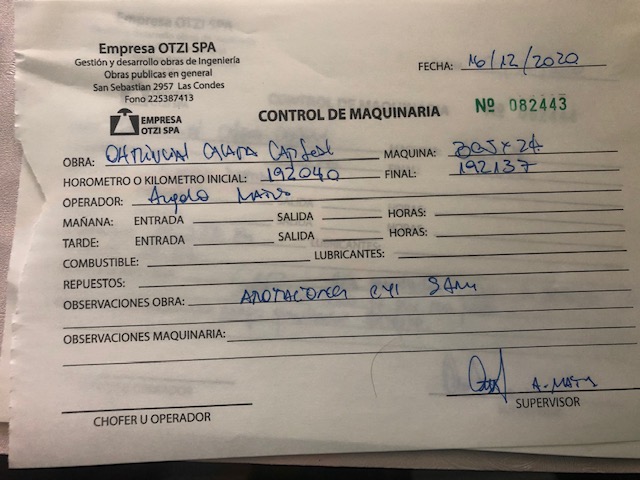 Empresa OTZI SPA
Gestión y desarrollo obras de Ingeniería
Obras publicas en general
San Sebastian 2957 Las Condes
Fono 225387413
FECHA: 16/12/2020
EMPRESA
OTZI SPA
CONTROL DE MAQUINARIA Nº 082443
OBRA: MAQUINA:
HOROMETRO O KILOMETRO INICIAL: 192040 FINAL: 192137
OPERADOR: Angelo
MAÑANA: ENTRADA SALIDA HORAS:
TARDE: ENTRADA SALIDA HORAS:
COMBUSTIBLE: LUBRICANTES:
REPUESTOS:
OBSERVACIONES OBRA:
OBSERVACIONES MAQUINARIA:
CHOFER U OPERADOR SUPERVISOR